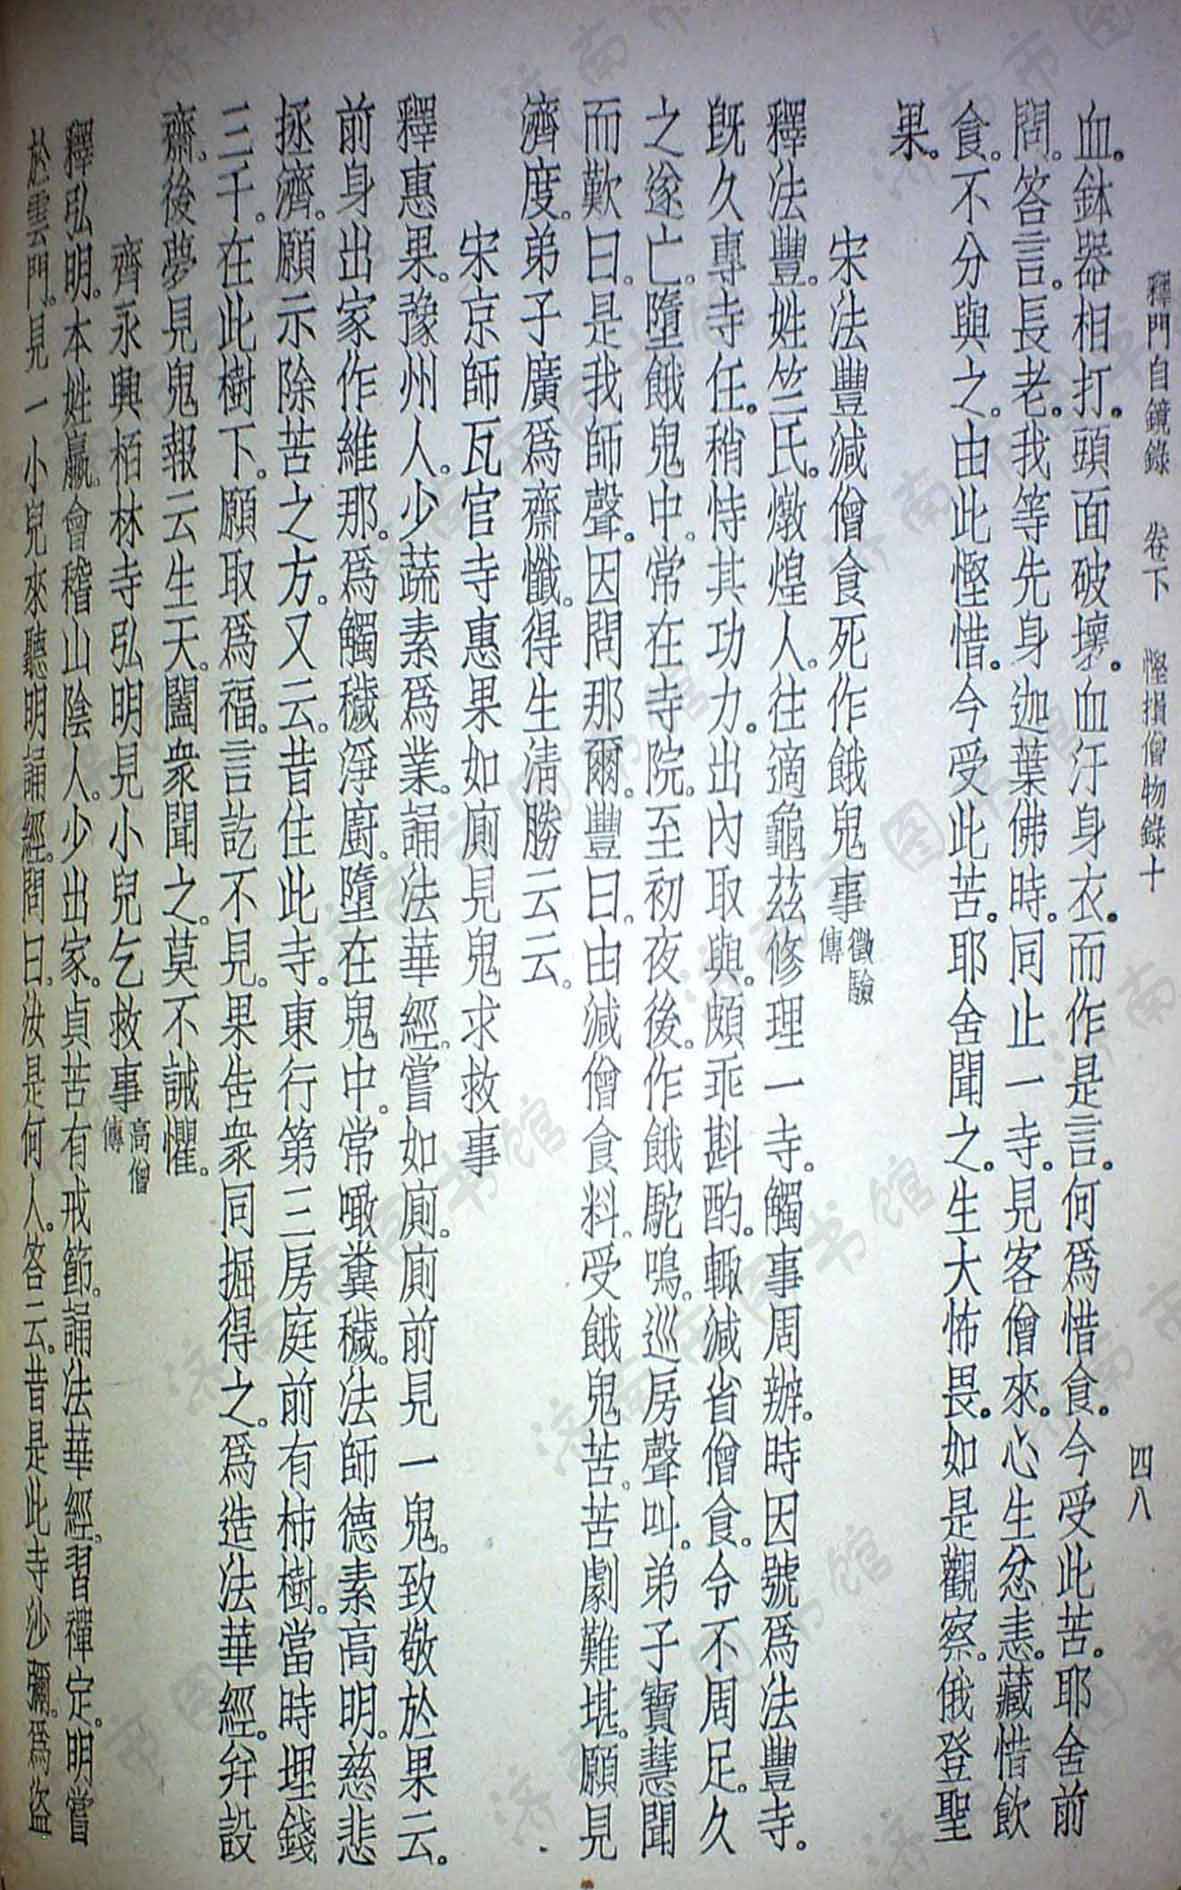 釋門自鏡錄　卷下　慳損僧物錄十　四八
血。鉢器相打。頭面破壞。血汙身衣。而作是言。何爲惜食。今受此苦。耶舍前
問。答言。長老。我等先身迦葉佛時。同止一寺。見客僧來。心生忿恚。藏惜飲
食。不分與之。由此慳惜。今受此苦。耶舍聞之。生大怖畏。如是觀察。俄登聖
果。
宋法豐減僧食死作餓鬼事 徵驗傳
釋法豐。姓竺氏。燉煌人。往適龜茲修理一寺。觸事周辦。時因號爲法豐寺。
既久專寺任。稍恃其功力。出內取與。頗乖斟酌。輒減省僧食。令不周足。久
之遂亡。墮餓鬼中。常在寺院。至初夜後。作餓駝鳴。巡房聲叫。弟子寶慧聞
而歎曰。是我師聲。因問那爾。豐曰。由減僧食料。受餓鬼苦。苦劇難堪。願見
濟度。弟子廣爲齋懺。得生淸勝云云。
宋京師瓦官寺惠果如廁見鬼求救事
釋惠果。豫州人。少蔬素爲業。誦法華經。嘗如廁。廁前見一鬼。致敬於果云。
前身出家作維那。爲觸穢淨廚。墮在鬼中。常噉糞穢。法師德素高明。慈悲
拯濟。願示除苦之方。又云。昔住此寺。東行第三房庭前有柿樹。當時埋錢
三千。在此樹下。願取爲福。言訖不見。果告衆同掘得之。爲造法華經。幷設
齋。後夢見鬼報云生天。闔衆聞之。莫不誡懼。
齊永興栢林寺弘明見小兒乞救事 高僧傳
釋弘明。本姓嬴。會稽山陰人。少出家。貞苦有戒節。誦法華經。習禪定。明嘗
於雲門。見一小兒來聽明誦經。問曰。汝是何人。答云。昔是此寺沙彌。爲盜